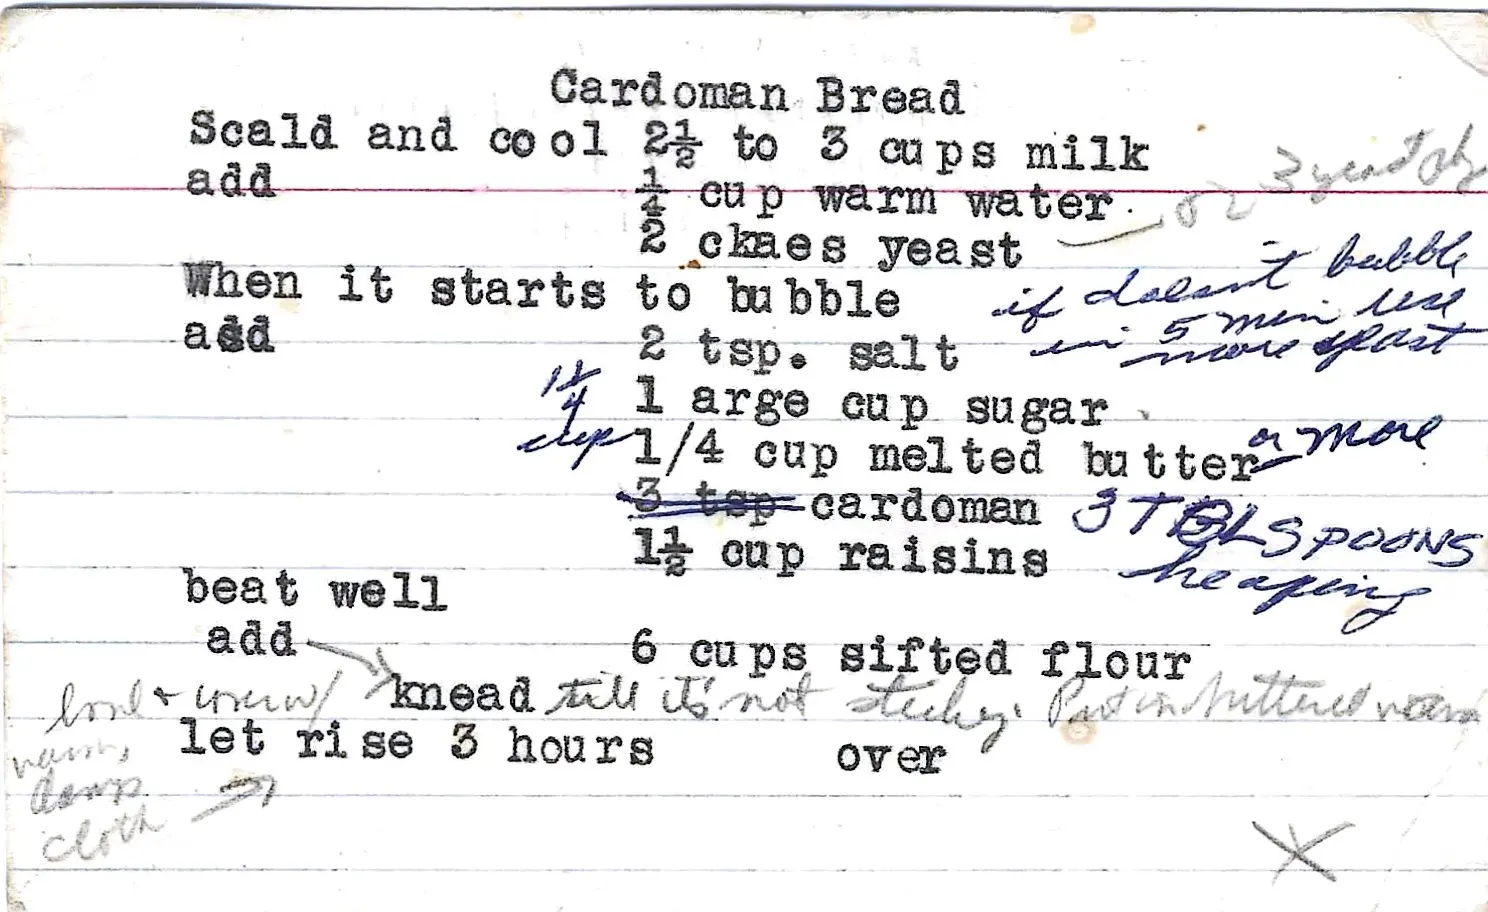 Cardoman Bread
Scald and cool 2½ to 3 cups milk
add ¼ cup warm water
or 3 yeast
2 ckaes yeast
When it starts to bubble
if doesn't bubble
in 5 min use
more yeast
add 2 tsp. salt
1 arge cup sugar
1¼
cup
1/4 cup melted butter or more
3 tsp cardoman 3 TBLSPOONS
heaping
1½ cup raisins
beat well
add 6 cups sifted flour
knead till it's not sticky. Put in buttered warm
bowl + cover w/
warm,
damp
cloth
let rise 3 hours over